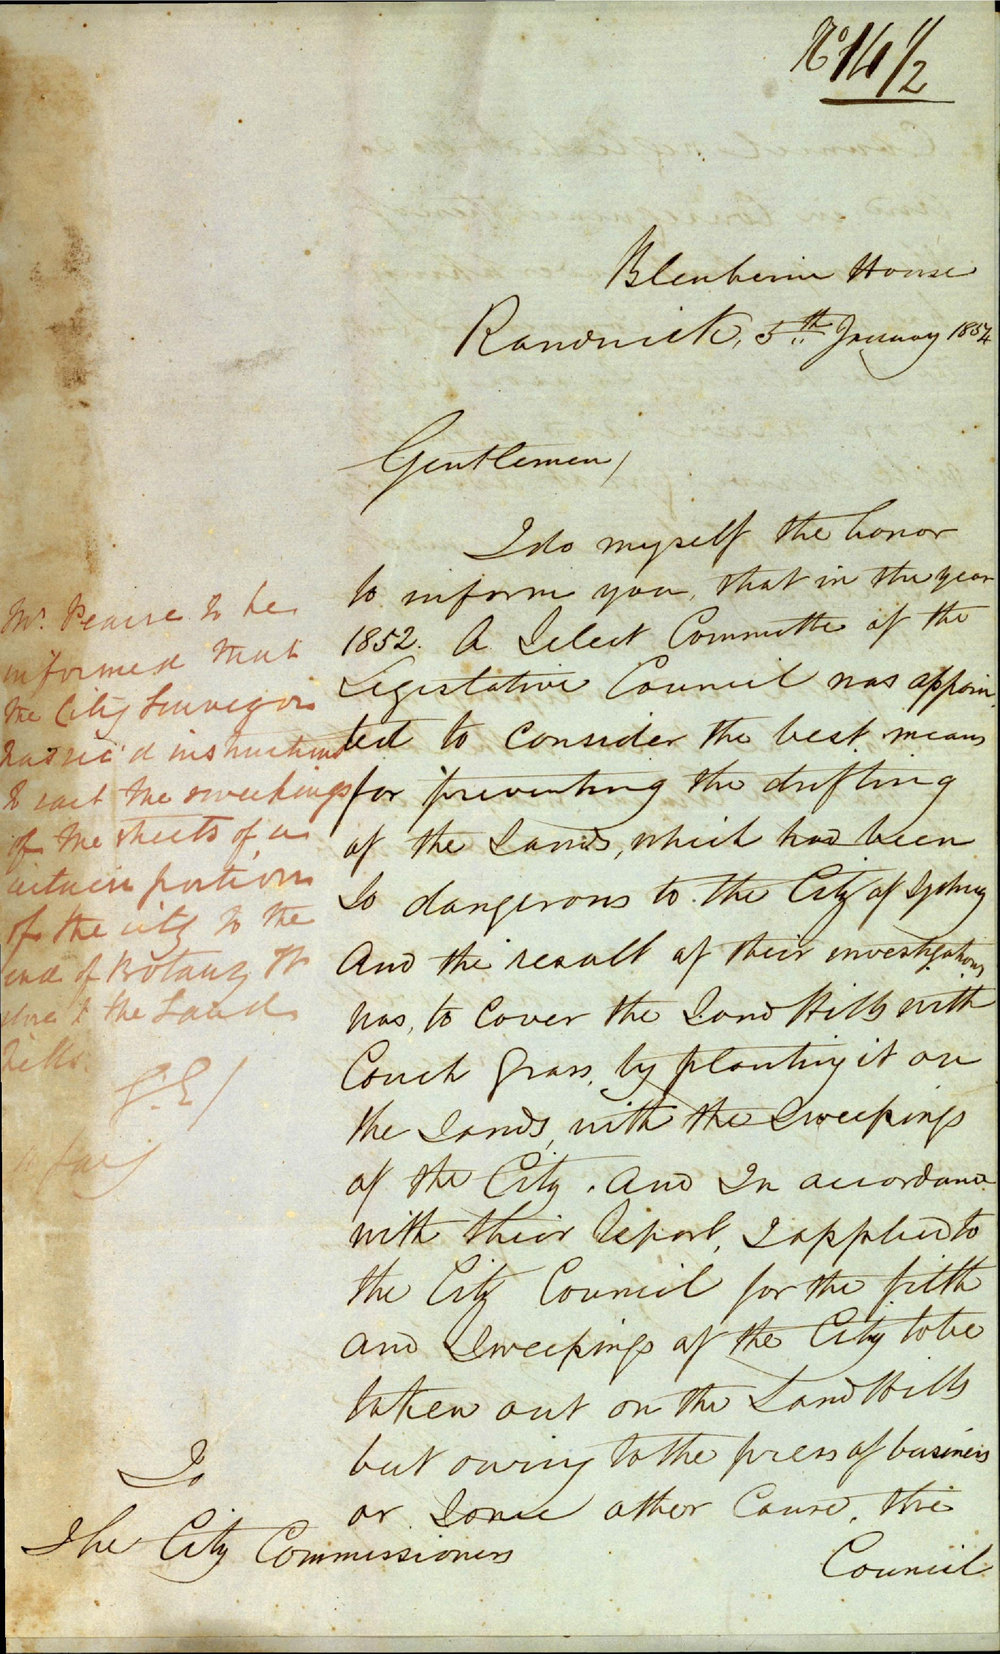 No 14 1/2
Blenheim House
Randwick, 5th January 1854
Gentlemen,
I do myself the honor
to inform you, that in the year
1852. A Select Committe of the
Legislative Council was appoin
ted to consider the best means
for preventing the drifting
of the Sands, which had been
So dangerous to the City of Sydney
And the result of their investigations
was, to Cover the Sand Hills with
Couch Grass, by planting it on
the Sands, with the Sweepings
of the City. And In accordance
with their Report, I applied to
the City Council for the filth
and Sweepings of the City to be
taken out on the Sand Hills
but owing to the press of business
or Some other Cause, the
Council
To
The City Commissioners
Mr. Pearce to be
informed that
the City Surveyor
has rec'd instructions
to cart the sweepings
of the streets of a
certain portion
of the city to the
end of Botany St
close to the Sand
Hills
G.E/